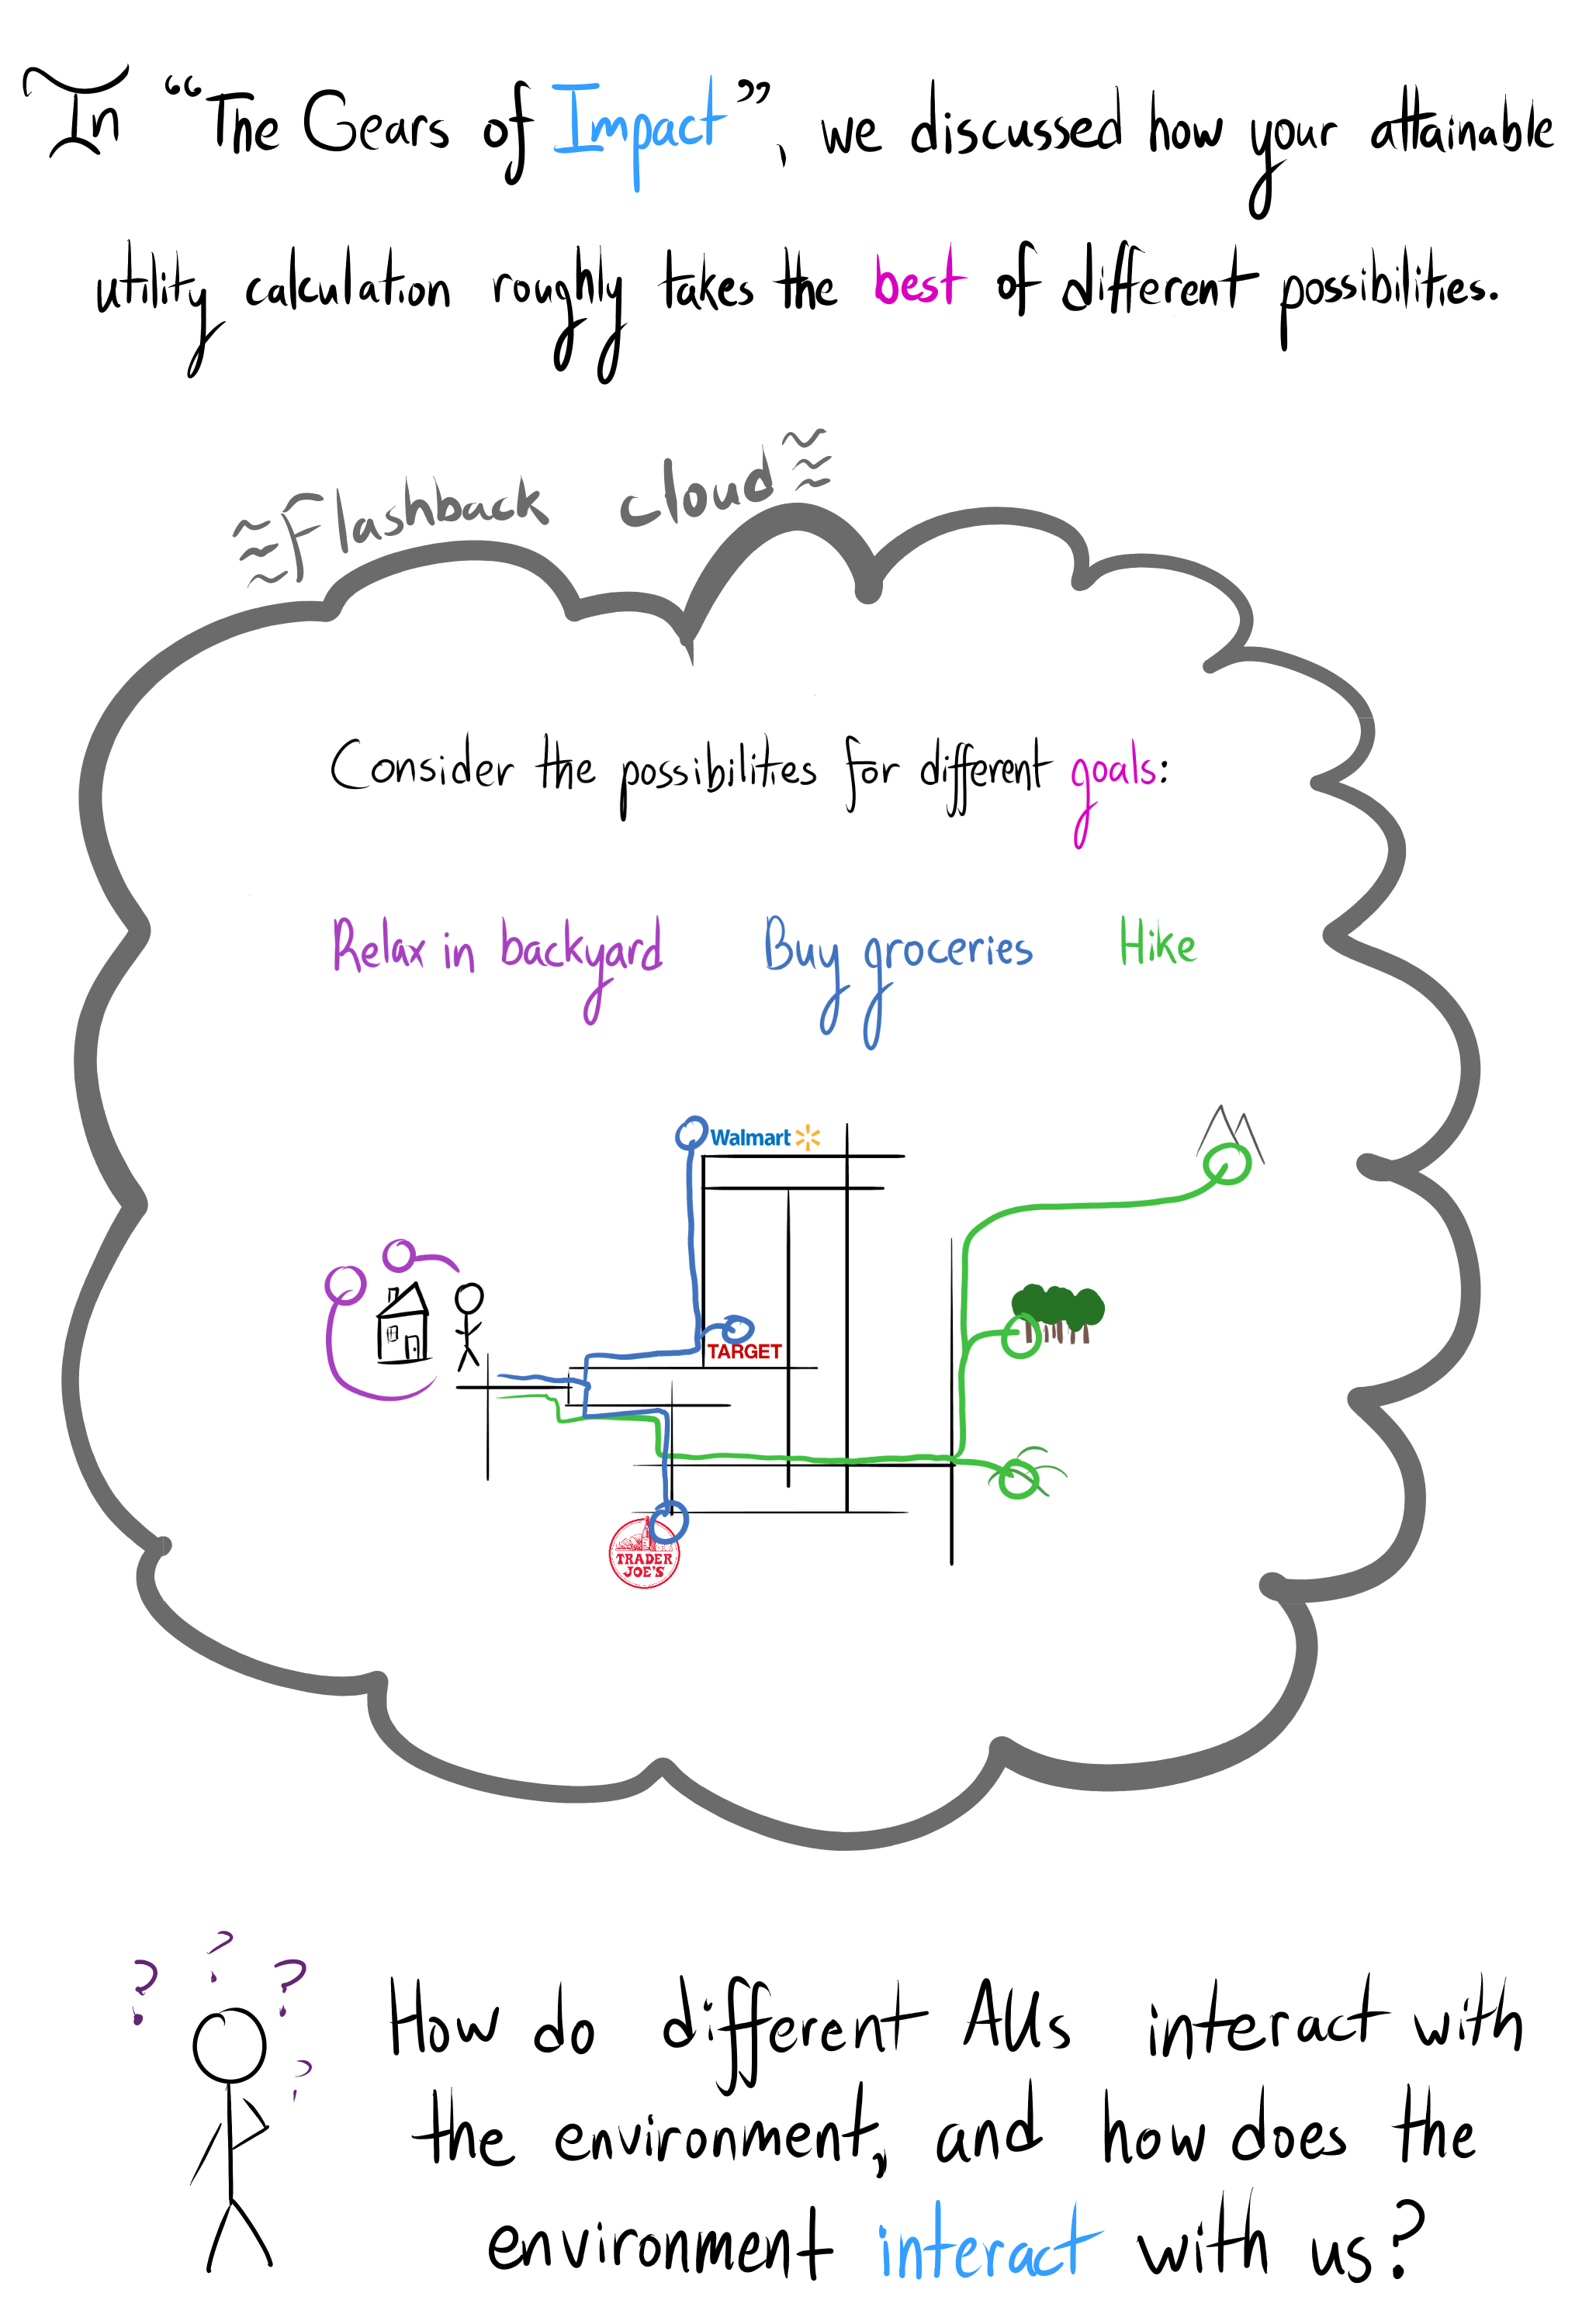 In “The Gears of Impact”, we discussed how your attainable
utility calculation roughly takes the best of different possibilities.
Flashback cloud
Consider the possibilities for different goals:
Relax in backyard Buy groceries Hike
Walmart
TARGET
TRADER
JOE'S
? ? ? ?
How do different AUs interact with
the environment, and how does the
environment interact with us?